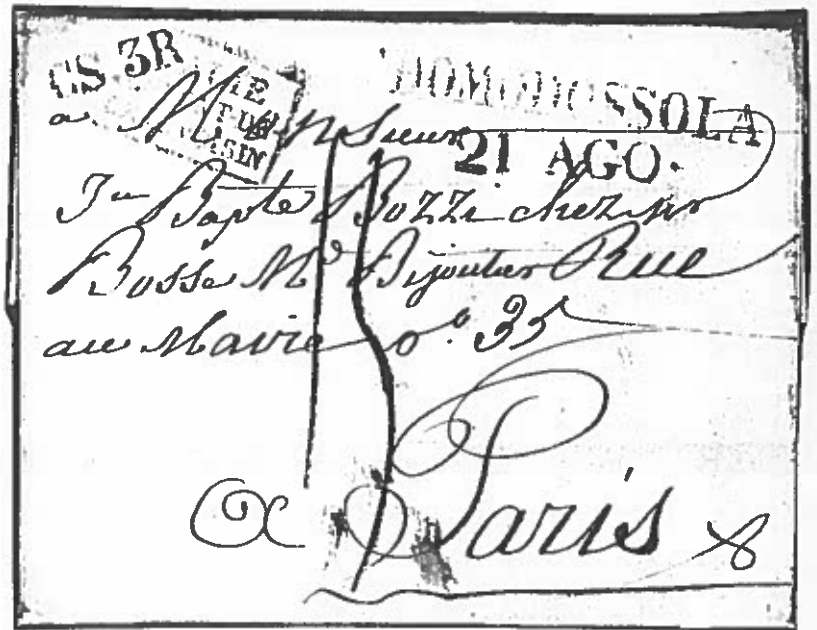 CS 3R
DOMODOSSOLA
21 AGO.
a Monsieur
Jn Bapte Bozzi chez mr
Bosse Md Bijoutier Rue
au Mavie no. 35
a Paris